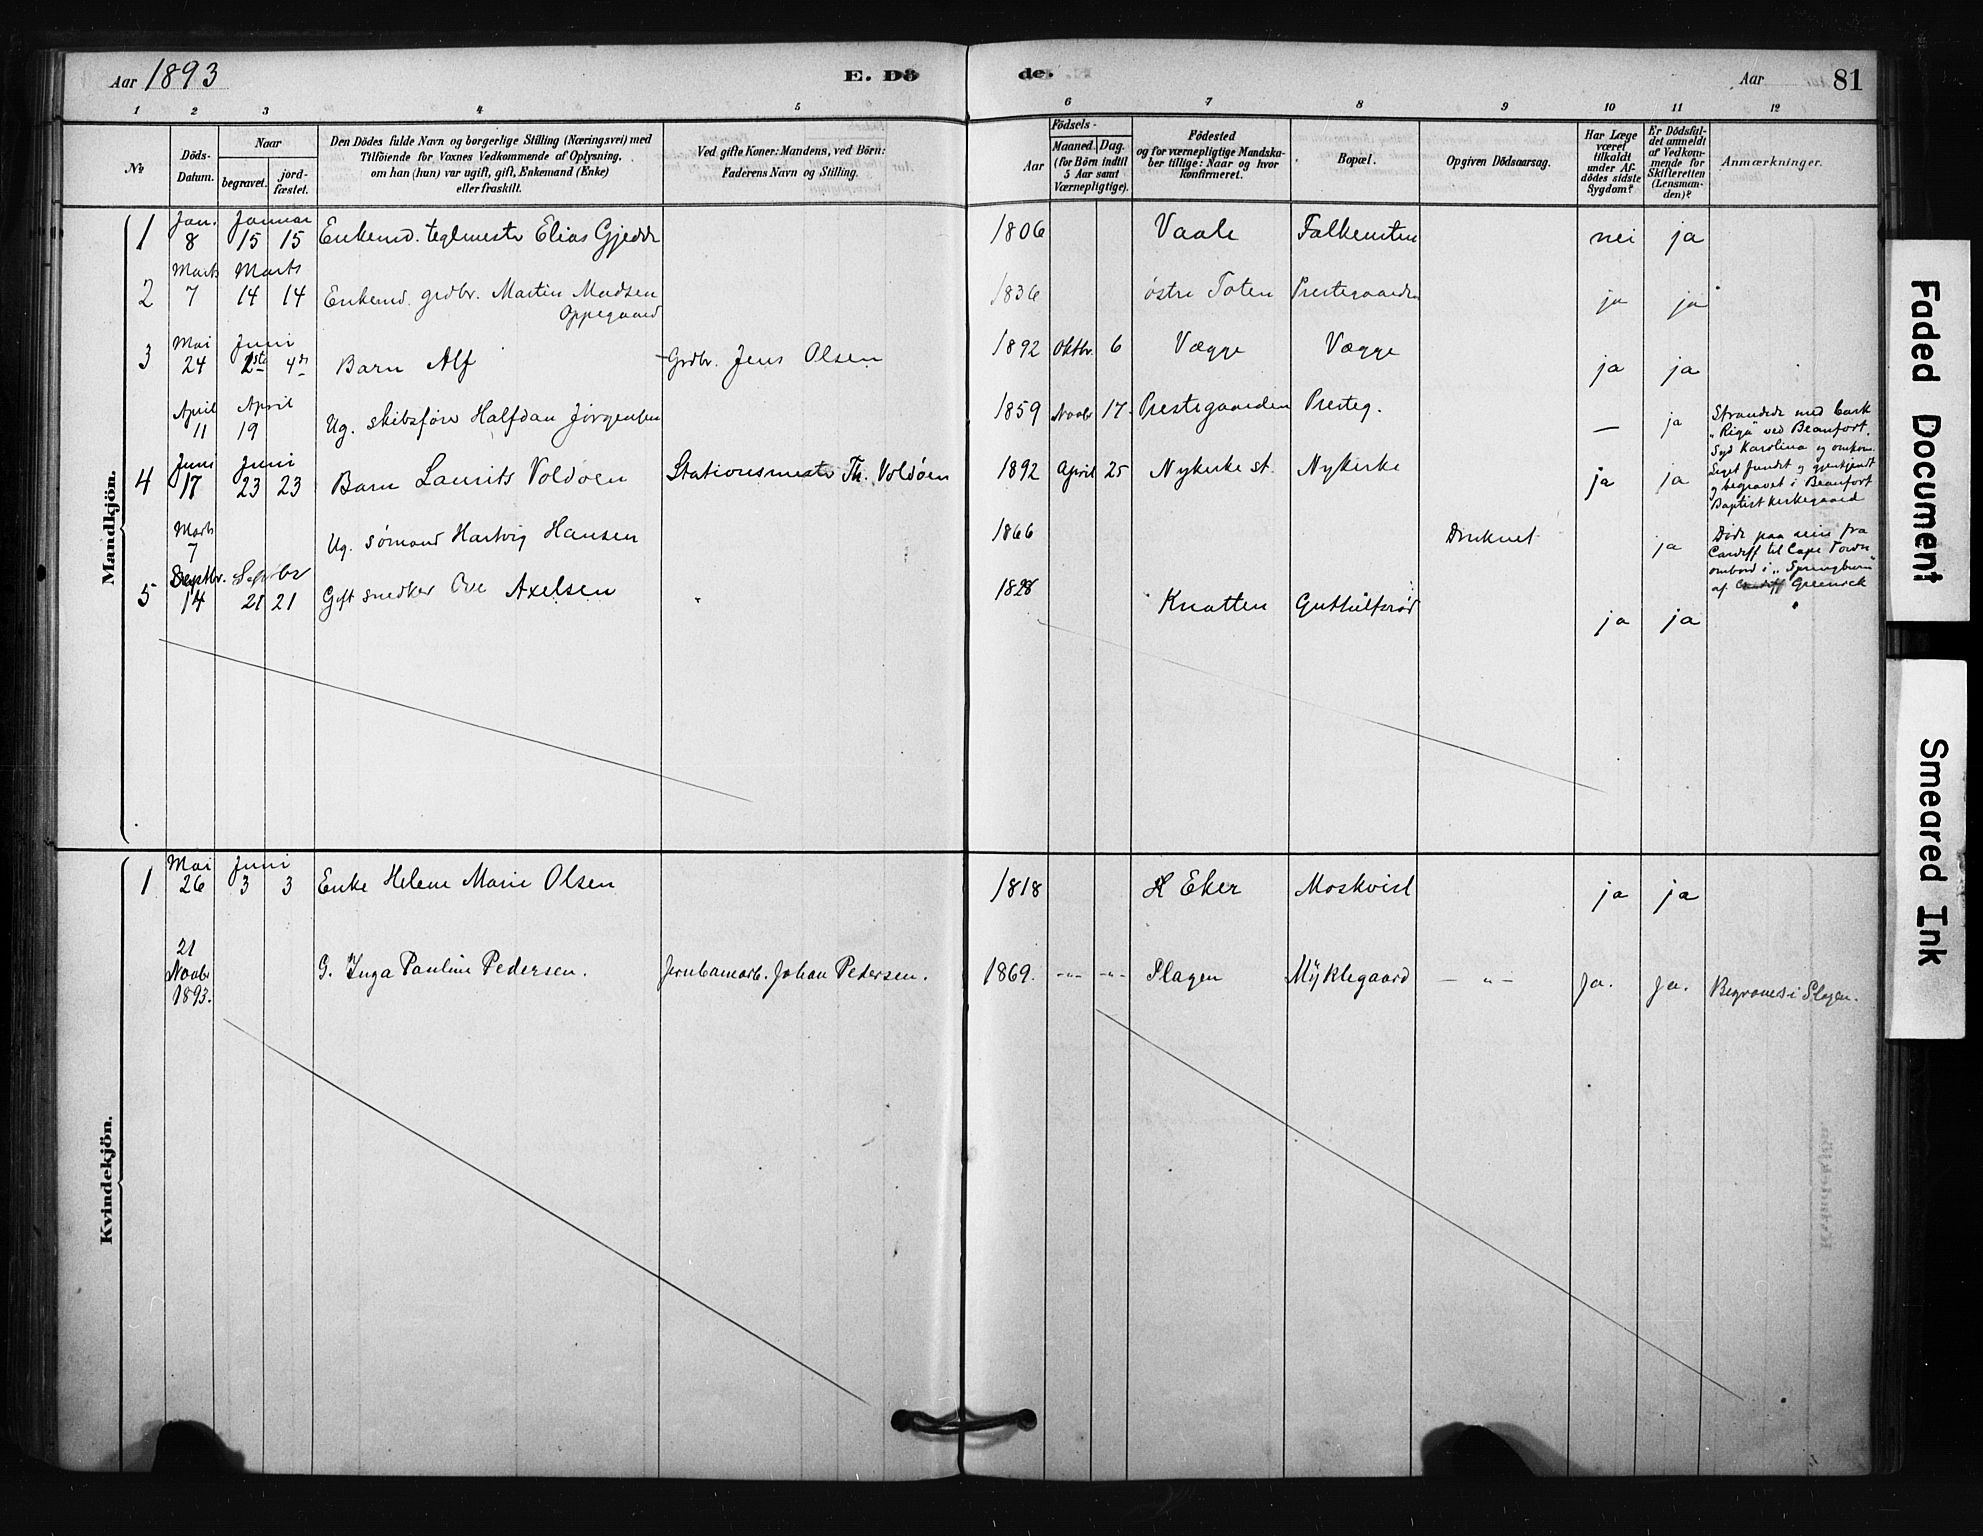 Aar 1893
E. Dö
de.
Aar
81
1 2 3 4 5 6 7 8 9 10 11 12
№
Döds-
Datum.
Naar
begravet.
jord-
fæstet.
Den Dödes fulde Navn og borgerlige Stilling (Næringsvei) med
Tilföiende for Voxnes Vedkommende af Oplysning,
om han (hun) var ugift, gift, Enkemand (Enke)
eller fraskilt.
Ved gifte Koner: Mandens, ved Börn:
Faderens Navn og Stilling.
Födsels-
Aar
Maaned. Dag.
(for Börn indtil
5 Aar samt
Værnepligtige).
Födested
og for værnepligtige Mandska-
ber tillige: Naar og hvor
konfirmeret.
Bopæl.
Opgiven Dödsaarsag.
Har Læge
været
tilkaldt
under Af-
dödes sidste
Sygdom?
Er Dödsfal-
det anmeldt
af Vedkom-
mende for
Skifteretten
(Lensman-
den)?
Anmærkninger.
Mandkjön.
1 Jan. 8 Januar 15 15 Enkemd. teglmester Elias Gjedde 1806 Vaale Falkensten nei ja
2 Marts 7 Marts 14 14 Enkemd. grdbr. Martin Madsen
Oppegaard 1836 østre Toten Prestegaarden ja ja
3 Mai 24 Juni 4de Barn Alf Grdbr. Jens Olsen 1892 Oktbr. 6 Vægge Vægge ja ja
April 11 April 19 Ug. skibsfører Halfdan Jørgensen 1859 Novbr 17 Prestegaarden Presteg. — ja
Strandede med bark
"Riga" ved Beaufort,
Syd Karolina og omkom.
Liget fundet og gjenkjendt
og begravet i Beaufort
Baptist kirkegaard
4 Juni 17 Juni 23 23 Barn Laurits Voldøen Stationsmester Th. Voldøen 1892 April 25 Nykirke st. Nykirke ja ja
Marts 7 Ug. sømand Hartvig Hansen 1866 Druknet ja
Døde paa reise fra
Cardiff til Cape Town
ombord i "Springburn"
af Greenock
5 Septbr. 14 Septbr 21 21 Gift snedker Ove Axelsen 1828 Knatten Guthulfsrød ja ja
Kvindekjön.
1 Mai 26 Juni 3 3 Enke Helene Marie Olsen 1818 Eker Moskvist ja ja
21
Novbr
1893. G. Inga Pauline Pedersen. Jernbanearb. Johan Pedersen. 1869. -"- -"- Slagen Myklegaard — " — Ja. Ja. Begraves i Slagen.
Faded Document
Smeared Ink